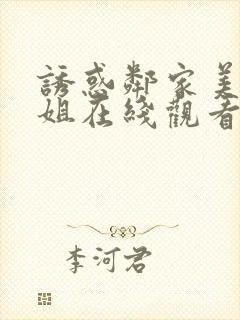 誘惑鄰家美
姐在綫觀看
李河君